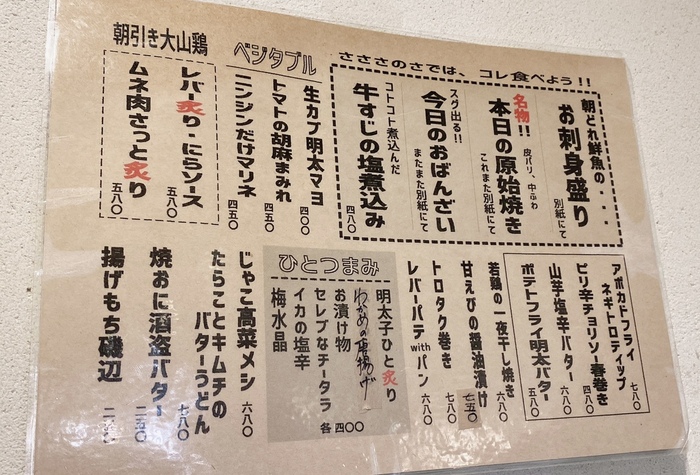 さささのさでは、コレ食べよう!!
朝どれ鮮魚の・・・
お刺身盛り
別紙にて
名物!!
本日の原始焼き
皮パリ、中ふわ
これまた別紙にて
スグ出る!!
今日のおばんざい
またまた別紙にて
コトコト煮込んだ
牛すじの塩煮込み
四八〇
ベジタブル
生カブ明太マヨ
四〇〇
トマトの胡麻まみれ
四五〇
ニンジンだけマリネ
四五〇
朝引き大山鶏
レバー炙り・にらソース
五八〇
ムネ肉さっと炙り
五八〇
アボカドフライ
ネギトロディップ
七八〇
ピリ辛チョリソー春巻き
四八〇
山芋塩辛バター
六八〇
ポテトフライ明太バター
五八〇
若鶏の一夜干し焼き
六八〇
甘えびの醤油漬け
七五〇
トロタク巻き
七八〇
レバーパテwithパン
六八〇
ひとつまみ
明太子ひと炙り
わかめの唐揚げ
お漬け物
セレブなチータラ
イカの塩辛
梅水晶
各四〇〇
じゃこ高菜メシ
六八〇
たらことキムチの
バターうどん
七八〇
焼おに酒盗バター
二五〇
揚げもち磯辺